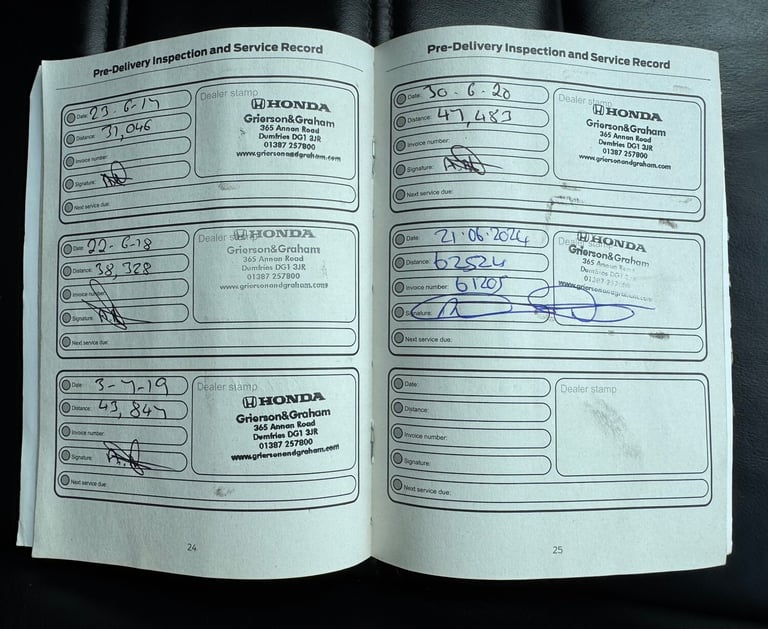 Pre-Delivery Inspection and Service Record
Date: 23-6-17
Distance: 31,046
Invoice number:
Signature:
Next service due:
Dealer stamp
HONDA
Grierson&Graham
365 Annan Road
Dumfries DG1 3JR
01387 257800
www.griersonandgraham.com
Date: 22-6-18
Distance: 38,328
Invoice number:
Signature:
Next service due:
Dealer stamp
HONDA
Grierson&Graham
365 Annan Road
Dumfries DG1 3JR
01387 257800
www.griersonandgraham.com
Date: 3-7-19
Distance: 43,847
Invoice number:
Signature:
Next service due:
Dealer stamp
HONDA
Grierson&Graham
365 Annan Road
Dumfries DG1 3JR
01387 257800
www.griersonandgraham.com
24
Pre-Delivery Inspection and Service Record
Date: 30-6-20
Distance: 47,483
Invoice number:
Signature:
Next service due:
Dealer stamp
HONDA
Grierson&Graham
365 Annan Road
Dumfries DG1 3JR
01387 257800
www.griersonandgraham.com
Date: 21.06.2024
Distance: 62524
Invoice number: 61205
Signature:
Next service due:
Dealer stamp
HONDA
Grierson&Graham
365 Annan Road
Dumfries DG1
01387
www.griersonandgraham.com
Date:
Distance:
Invoice number:
Signature:
Next service due:
Dealer stamp
25